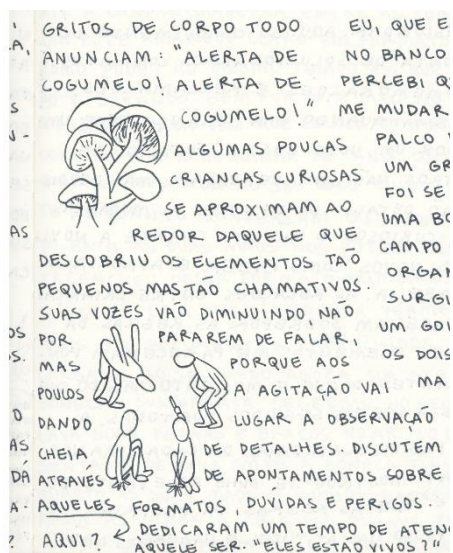 GRITOS DE CORPO TODO
ANUNCIAM "ALERTA DE
COGUMELO! ALERTA DE
COGUMELO!"
ALGUMAS POUCAS
CRIANÇAS CURIOSAS
SE APROXIMAM AO
REDOR DAQUELE QUE
DESCOBRIU OS ELEMENTOS TÃO
PEQUENOS MAS TÃO CHAMATIVOS.
SUAS VOZES VÃO DIMINUINDO, NÃO
POR PARAREM DE FALAR,
MAS PORQUE AOS
POUCOS A AGITAÇÃO VAI
DANDO LUGAR À OBSERVAÇÃO
CHEIA DE DETALHES. DISCUTEM
ATRAVÉS DE APONTAMENTOS SOBRE
AQUELES FORMATOS, DUVIDAS E PERIGOS.
AQUI? DEDICARAM UM TEMPO DE ATENÇ
ÀQUELE SER. "ELES ESTÃO VIVOS?"
EU, QUE E
NO BANCO
PERCEBI QU
ME MUDAR
PALCO
UM GR
FOI SE
UMA BO
CAMPO
ORGAN
SURGI
UM GOL
OS DOIS
MA